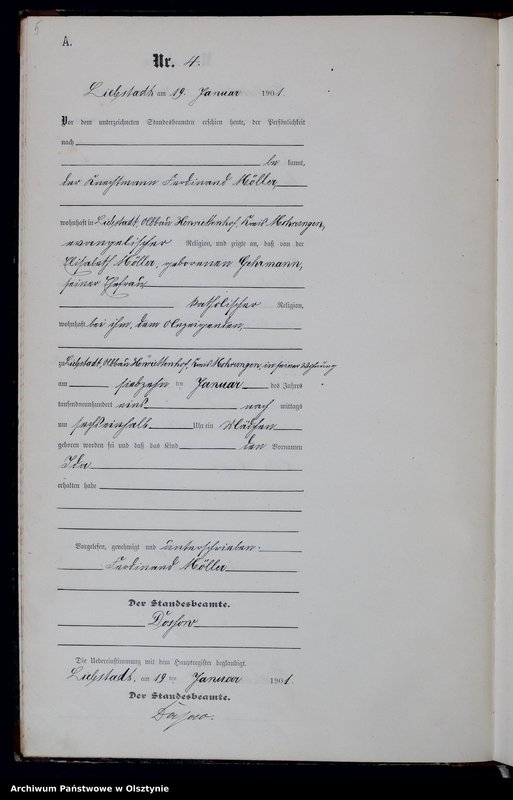 5
A.
Nr. 4.
Liebstadt am 19. Januar 1901.
Vor dem unterzeichneten Standesbeamten erschien heute, der Persönlichkeit
nach
be kannt,
der Ferdinand Möller
wohnhaft in Liebstadt, Abbau Henriettenhof, Kreis Mohrungen,
evangelischer Religion, und zeigte an, daß von der
Elisabeth Möller, geborenen Gehrmann,
seiner Ehefrau
katholischer Religion,
wohnhaft bei ihm, dem Anzeigenden,
zu Liebstadt, Abbau Henriettenhof, Kreis Mohrungen, in seiner Wohnung
am siebzehn ten Januar des Jahres
tausendneunhundert eins nach mittags
um Uhr ein Mädchen
geboren worden sei und daß das Kind den Vornamen
Ida
erhalten habe
Vorgelesen, genehmigt und unterschrieben.
Ferdinand Möller
Der Standesbeamte.
Die Uebereinstimmung mit dem Hauptregister beglaubigt.
Liebstadt, am 19 ten Januar 1901.
Der Standesbeamte.
Archiwum Państwowe w Olsztynie